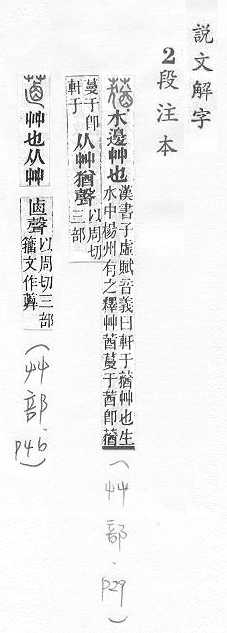 說文解字
2段注本
蕕 水邊艸也 漢書子虛賦音義曰軒于蕕艸也生
水中楊州有之釋艸莤蔓于莤卽蕕
(艸部.p29)
蔓于卽
軒于
从艸猶聲 以周切
三部
艸也从艸
聲 以周切三部
籒文作
(艸部.p46)